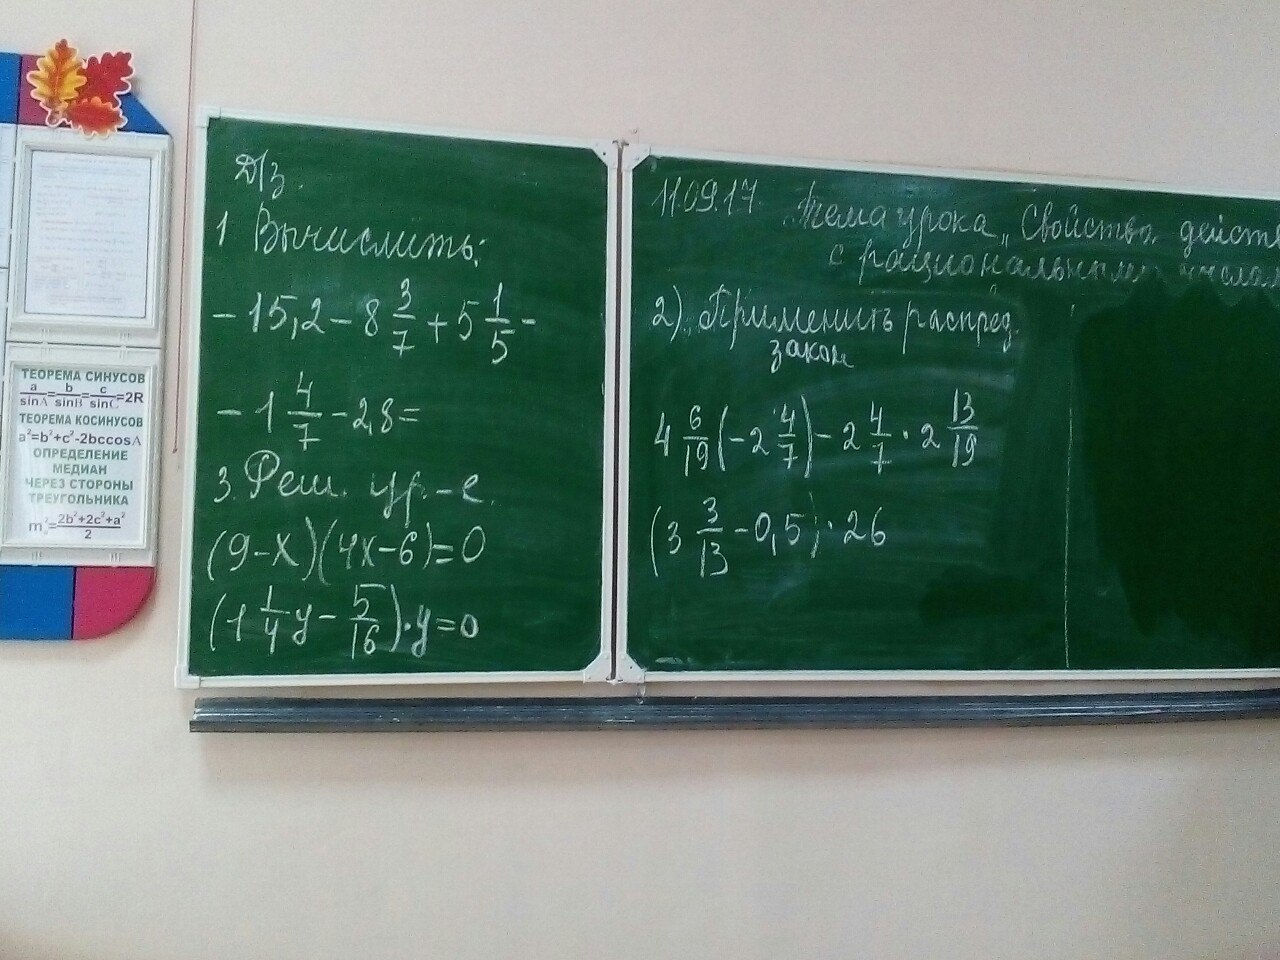 ТЕОРЕМА СИНУСОВ
a/sinA=b/sinB=c/sinC=2R
ТЕОРЕМА КОСИНУСОВ
a²=b²+c²-2bccosA
ОПРЕДЕЛЕНИЕ
МЕДИАН
ЧЕРЕЗ СТОРОНЫ
ТРЕУГОЛЬНИКА
mₐ²=(2b²+2c²+a²)/2
Д/з.
1 Вычислить:
-15,2-8 3/7+5 1/5-
-1 4/7-2,8=
3. Реш. ур-е.
(9-x)(4x-6)=0
(1 1/4y-5/16)·y=0
11.09.17. Тема урока „Свойства действ
с рациональными числам
2) Применить распред.
закон
4 6/19(-2 4/7)-2 4/7·2 13/19
(3 3/13-0,5)·26